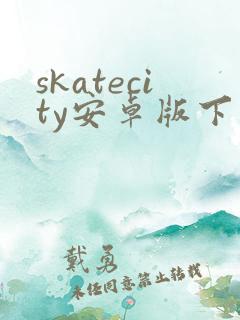 skateci
ty安卓版下
戴勇
未经同意禁止转载